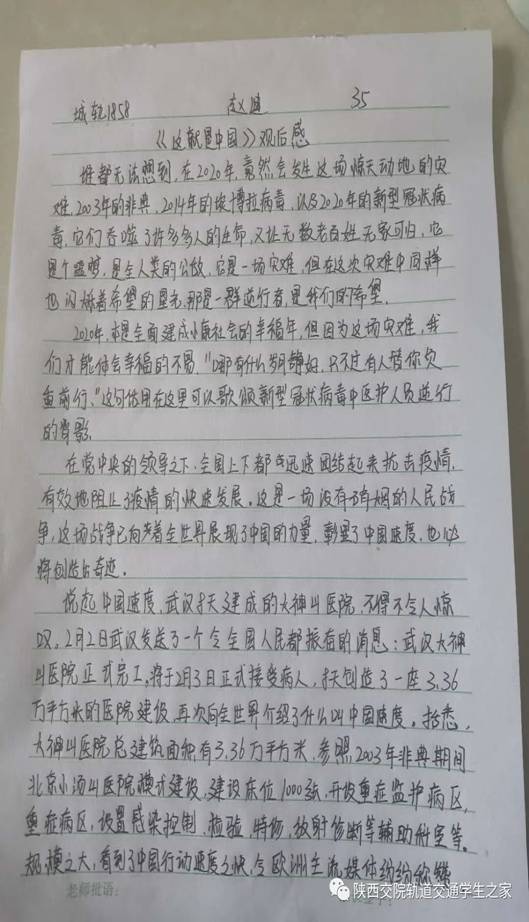 城轨1858 赵健 35
《这就是中国》观后感
谁都无法想到,在2020年竟然会发生这场惊天动地的灾
难,2003年的非典,2014年的埃博拉病毒,以及2020年的新型冠状病
毒,它们吞噬了许多多人的生命,又让无数老百姓无家可归,它
是个噩梦,是全人类的公敌,它是一场灾难,但在这次灾难中同样
也闪烁着希望的星光,那是一群逆行者,是我们的希望.
2020年,本是全面建成小康社会的幸福年,但因为这场灾难,我
们才能体会幸福的不易."哪有什么岁月静好,只不过有人替你负
重前行,"这句话用在这里可以歌颂新型冠状病毒中医护人员逆行
的背影.
在党中央的领导之下,全国上下都迅速团结起来抗击疫情,
有效地阻止了疫情的快速发展.这是一场没有硝烟的人民战
争,这场战争已向着全世界展现了中国的力量,彰显了中国速度,也必
将创造出奇迹.
说起中国速度,武汉8天建成的火神山医院,不得不令人惊
叹,2月2日武汉发送了一个令全国人民都振奋的消息:武汉火神
山医院正式完工,将于2月3日正式接受病人,8天创造了一座3.36
万平方米的医院建设,再次向全世界介绍了什么叫中国速度.据悉,
火神山医院总建筑面积有3.36万平方米,参照2003年非典期间
北京小汤山医院模式建设,建设床位1000张,开设重症监护病区,
重症病区,设置感染控制,检验,特诊,放射诊断等辅助科室等.
规模之大,看到了中国行动速度之快,令欧洲主流媒体纷纷称赞
老师批语:
陕西交院轨道交通学生之家